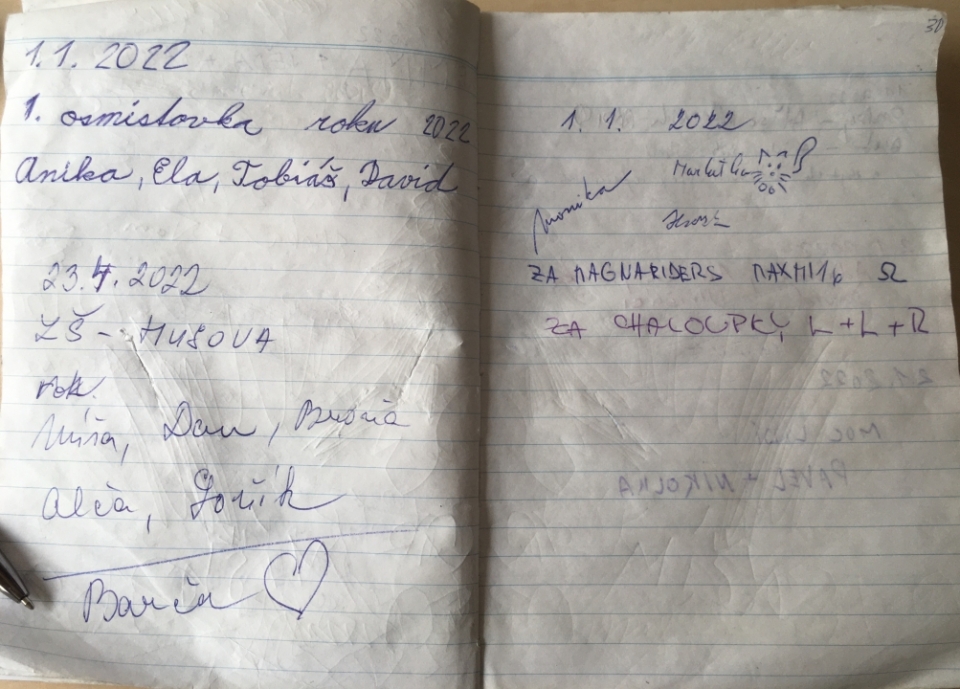 1.1. 2022
1. osmistovka roku 2022
Anika, Ela, Tobiáš, David
23.4.2022
ZŠ - HUSOVA
rok.
Míša, Dan,
Alča,
Barča
30
1. 1. 2022
Markétka
Monika
ZA MAGNARIDERS Ω
ZA CHALOUPKY L+L+R
2.1.2022
PAVEL + NIKOLKA